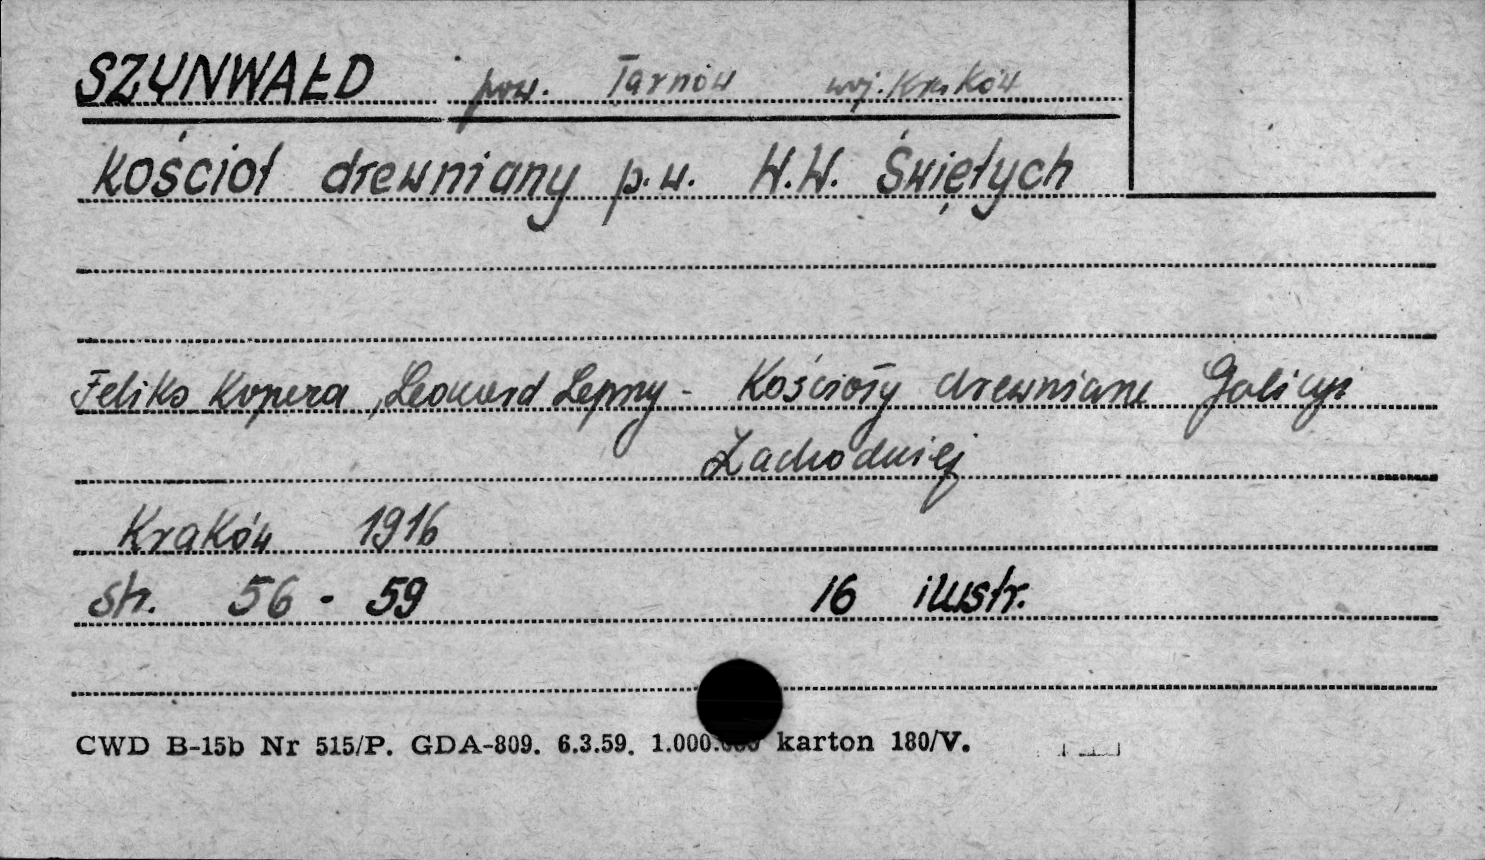 SZYNWAŁD pow. Tarnów woj. Kraków
Kościół drewniany p.w. W.W. Świętych
Feliks Kopera, Leonard Lepszy - Kościoły drewniane Galicyi
Zachodniej
Kraków 1916
str. 56 - 59 16 ilustr.
CWD B-15b Nr 515/P. GDA-809. 6.3.59. 1.000.000 karton 180/V.